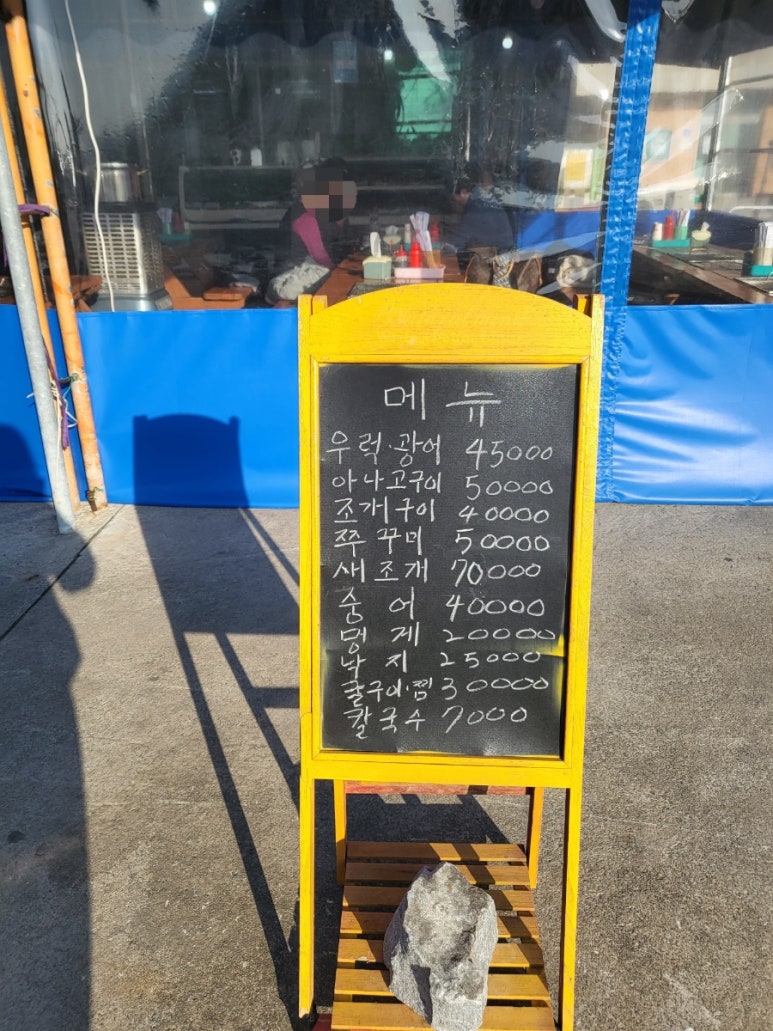 메뉴
우럭·광어 45000
아나고구이 50000
조개구이 40000
쭈꾸미 50000
새조개 70000
숭어 40000
멍게 20000
낙지 25000
굴구이·찜 30000
칼국수 7000